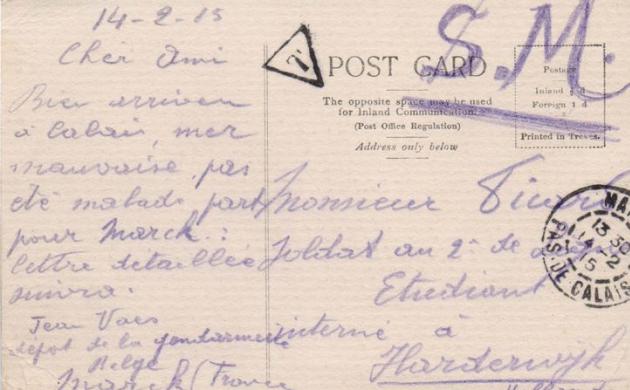 14-2-15
Cher Ami
Bien arriver
à Calais, mer
mauvaise, pas
été malade, part
pour Marck.:
lettre detaillée
suivra.
Jean Vaes
dépot de la gendarmerie
Belge
Marck (France
T
POST CARD
S.M.
The opposite space may be used
for Inland Communication.
(Post Office Regulation)
Address only below
Postage
Inland ½ d
Foreign 1 d
Printed in Treves.
Monsieur
Soldat au 2e de
Etudiant
interné à
Harderwijk
MA
13 30
14-2
15
PAS-DE-CALAIS